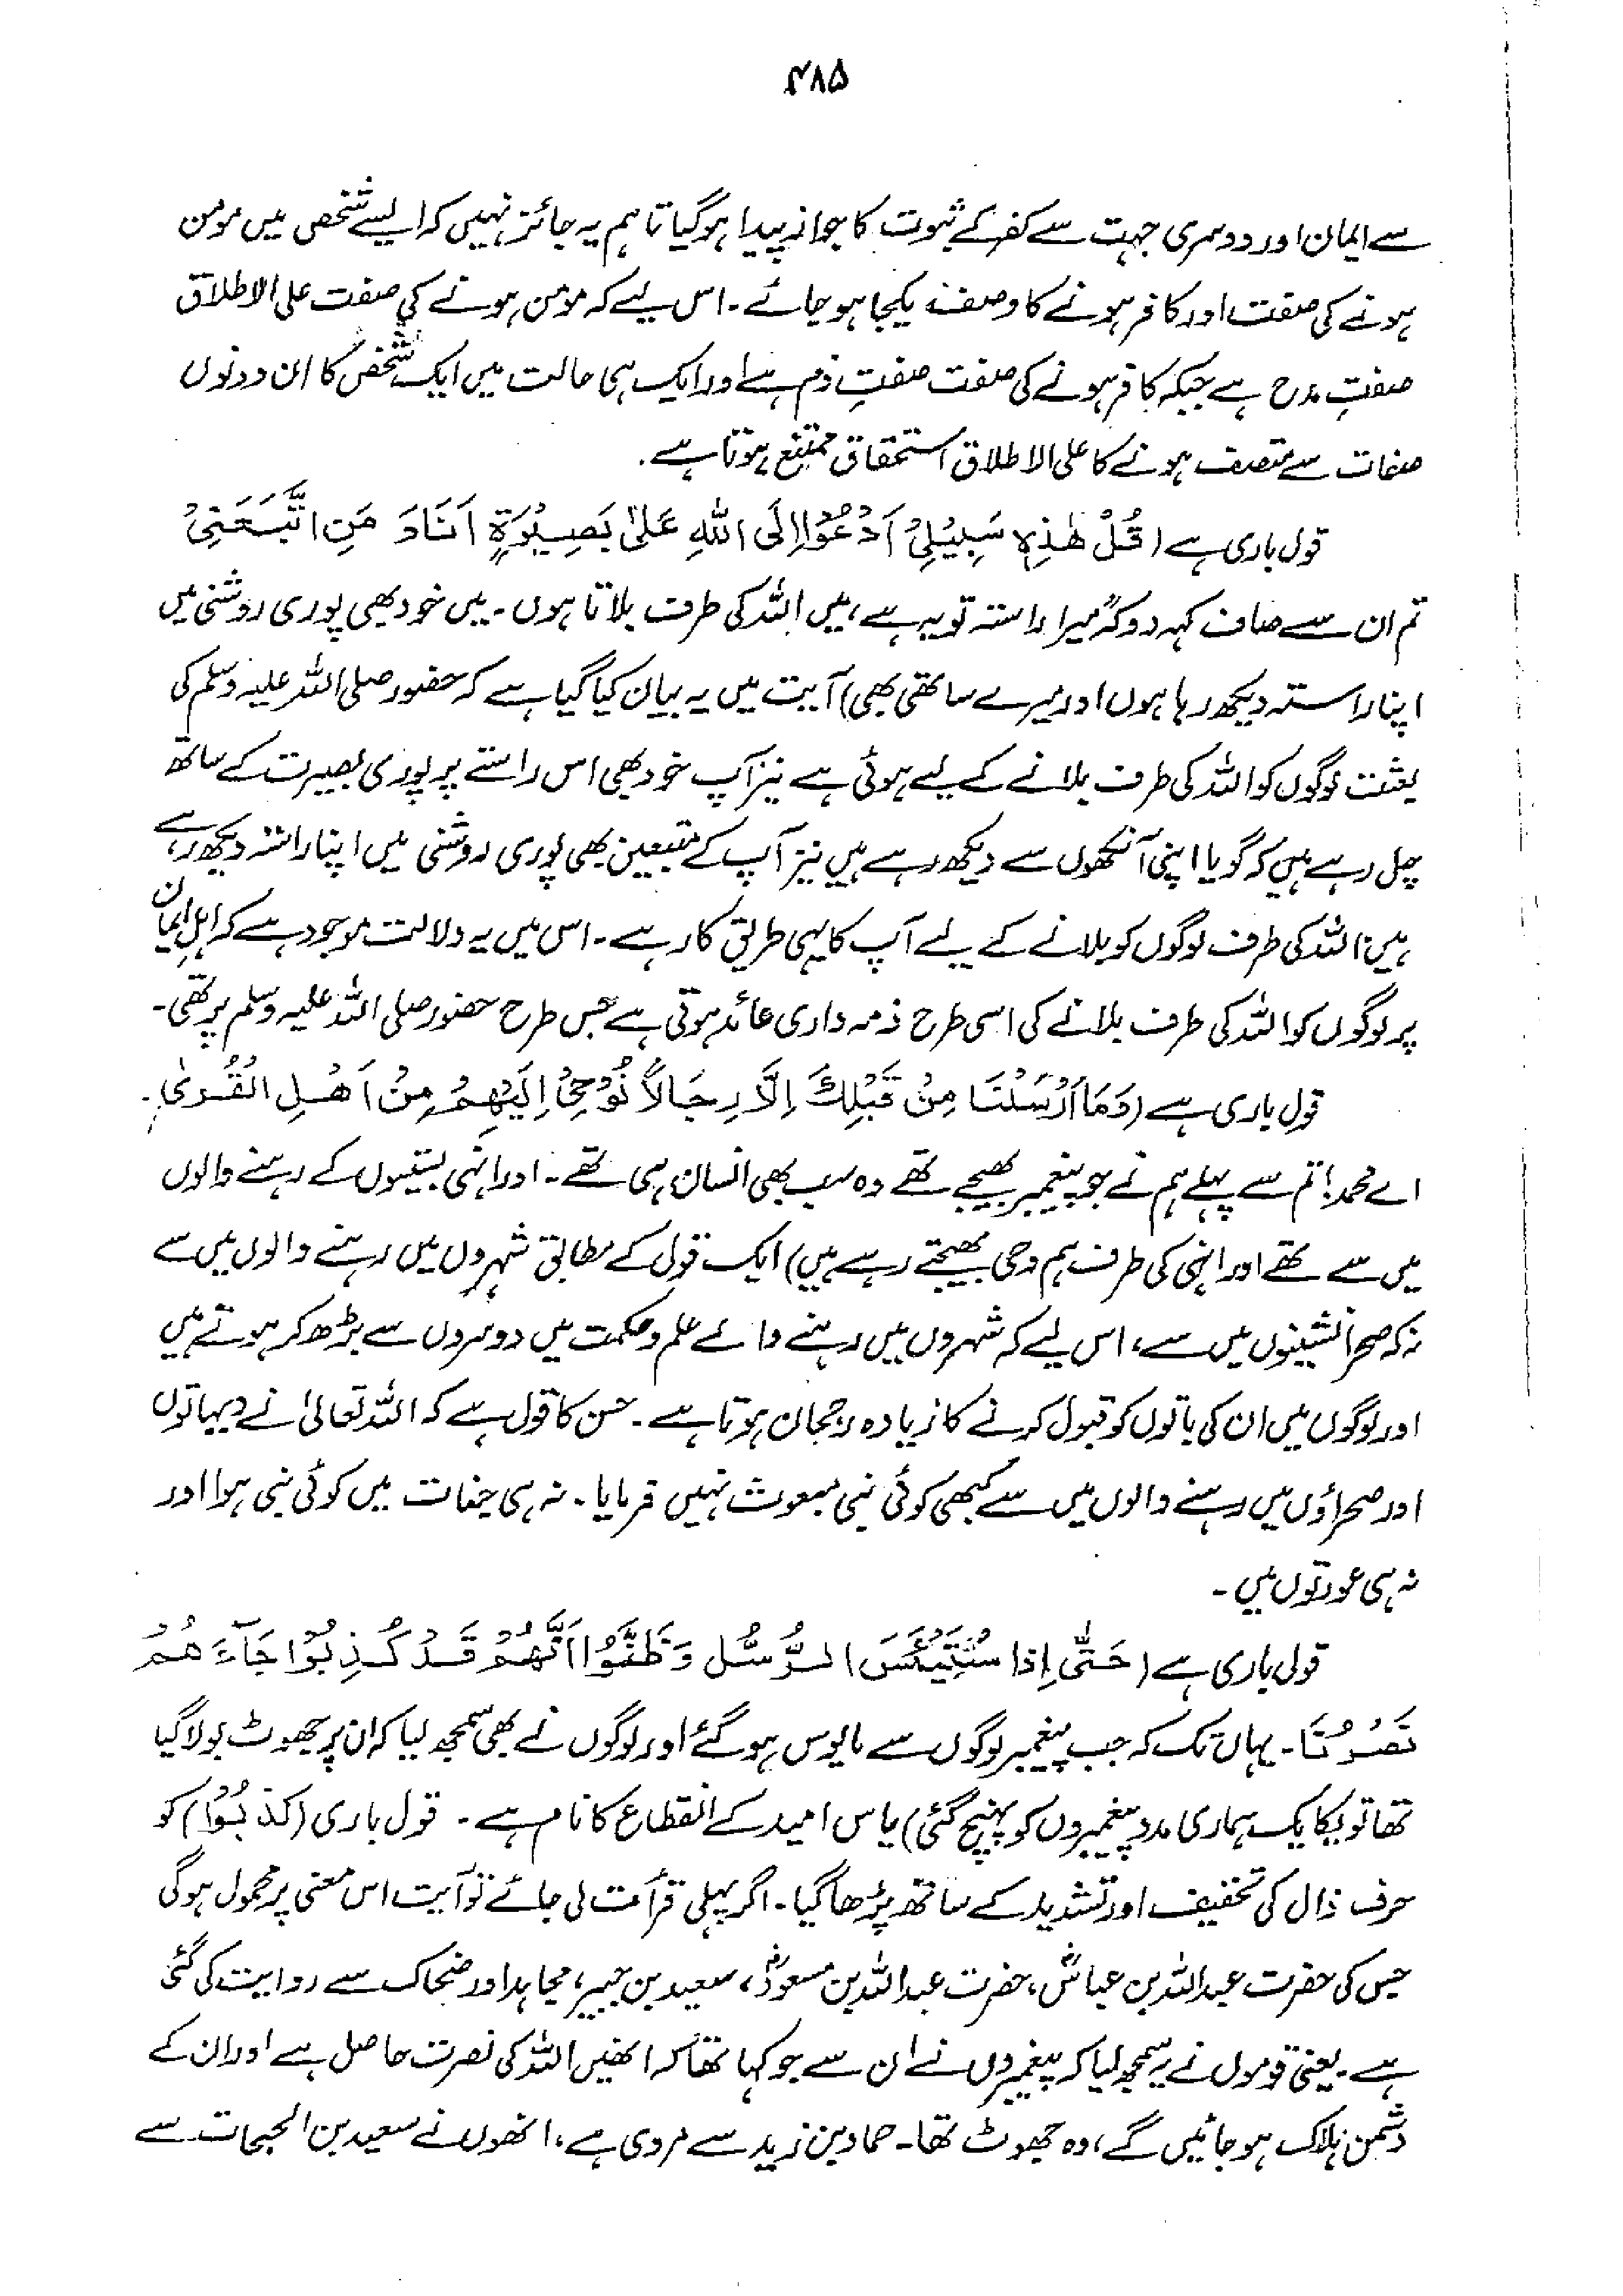 ۴۸۵
سے ایمان اور دوسری جہت سے کفر کے ثبوت کا جواز پیدا ہوگیا تاہم یہ جائز نہیں کہ ایسے شخص میں مومن
ہونے کی صفت اور کافر ہونے کا وصف یکجا ہو جائے۔ اس لیے کہ مومن ہونے کی صفت علی الاطلاق
صفتِ مدح ہے جبکہ کافر ہونے کی صفت صفتِ ذم ہے اور ایک ہی حالت میں ایک شخص کا ان دونوں
صفات سے متصف ہونے کا علی الاطلاق استحقاق ممتنع ہوتا ہے۔
قول باری ہے (قُلْ هٰذِهٖ سَبِيْلِيْ اَدْعُوْا اِلَى اللّٰهِ عَلٰى بَصِيْرَةٍ اَنَا وَ مَنِ اتَّبَعَنِيْ
تم ان سے صاف کہہ دو کہ میرا راستہ تو یہ ہے، میں اللہ کی طرف بلاتا ہوں۔ میں خود بھی پوری روشنی میں
اپنا راستہ دیکھ رہا ہوں اور میرے ساتھی بھی) آیت میں یہ بیان کیا گیا ہے کہ حضور صلی اللہ علیہ وسلم کی
بعثت لوگوں کو اللہ کی طرف بلانے کے لیے ہوئی ہے نیز آپ خود بھی اس راستے پر پوری بصیرت کے ساتھ
چل رہے ہیں کہ گویا اپنی آنکھوں سے دیکھ رہے ہیں نیز آپ کے متبعین بھی پوری روشنی میں اپنا راستہ دیکھ رہے
ہیں، اللہ کی طرف لوگوں کو بلانے کے لیے آپ کا یہی طریق کار ہے۔ اس میں یہ دلالت موجود ہے کہ اہلِ ایمان
پر لوگوں کو اللہ کی طرف بلانے کی اسی طرح ذمہ داری عائد ہوتی ہے جس طرح حضور صلی اللہ علیہ وسلم پر تھی۔
قول باری ہے (وَمَا اَرْسَلْنَا مِنْ قَبْلِكَ اِلَّا رِجَالًا نُوْحِيْ اِلَيْهِمْ مِنْ اَهْلِ الْقُرٰى۔
اے محمد! تم سے پہلے ہم نے جو پیغمبر بھیجے تھے وہ سب بھی انسان ہی تھے۔ اور انہی بستیوں کے رہنے والوں
میں سے تھے اور انہی کی طرف ہم وحی بھیجتے رہے ہیں) ایک قول کے مطابق شہروں میں رہنے والوں میں سے
نہ کہ صحرا نشینوں میں سے، اس لیے کہ شہروں میں رہنے والے علم و حکمت میں دوسروں سے بڑھ کر ہوتے ہیں
اور لوگوں میں ان کی باتوں کو قبول کرنے کا زیادہ رجحان ہوتا ہے۔ حسن کا قول ہے کہ اللہ تعالیٰ نے دیہاتوں
اور صحراؤں میں رہنے والوں میں سے کبھی کوئی نبی مبعوث نہیں فرمایا۔ نہ ہی جنات میں کوئی نبی ہوا اور
نہ ہی عورتوں میں۔
قول باری ہے (حَتّٰى اِذَا سْتَيْئَسَ الرُّسُلُ وَظَنُّوْا اَنَّهُمْ قَدْ كُذِبُوْا جَآءَهُمْ
نَصْرُنَا۔ یہاں تک کہ جب پیغمبر لوگوں سے مایوس ہو گئے اور لوگوں نے بھی سمجھ لیا کہ ان پر جھوٹ بولا گیا
تھا تو یکایک ہماری مدد پیغمبروں کو پہنچ گئی) یاس امید کے انقطاع کا نام ہے۔ قول باری (كذبُوْا) کو
حرف ذال کی تخفیف اور تشدید کے ساتھ پڑھا گیا۔ اگر پہلی قرأت لی جائے تو آیت اس معنی پر محمول ہوگی
جس کی حضرت عبداللہ بن عباسؓ، حضرت عبداللہ بن مسعودؓ، سعید بن جبیر، مجاہد اور ضحاک سے روایت کی گئی
ہے۔ یعنی قوموں نے یہ سمجھ لیا کہ پیغمبروں نے ان سے جو کہا تھا کہ انھیں اللہ کی نصرت حاصل ہے اور ان کے
دشمن ہلاک ہو جائیں گے، وہ جھوٹ تھا۔ حماد بن زید سے مروی ہے، انھوں نے سعید بن الحبحاب سے